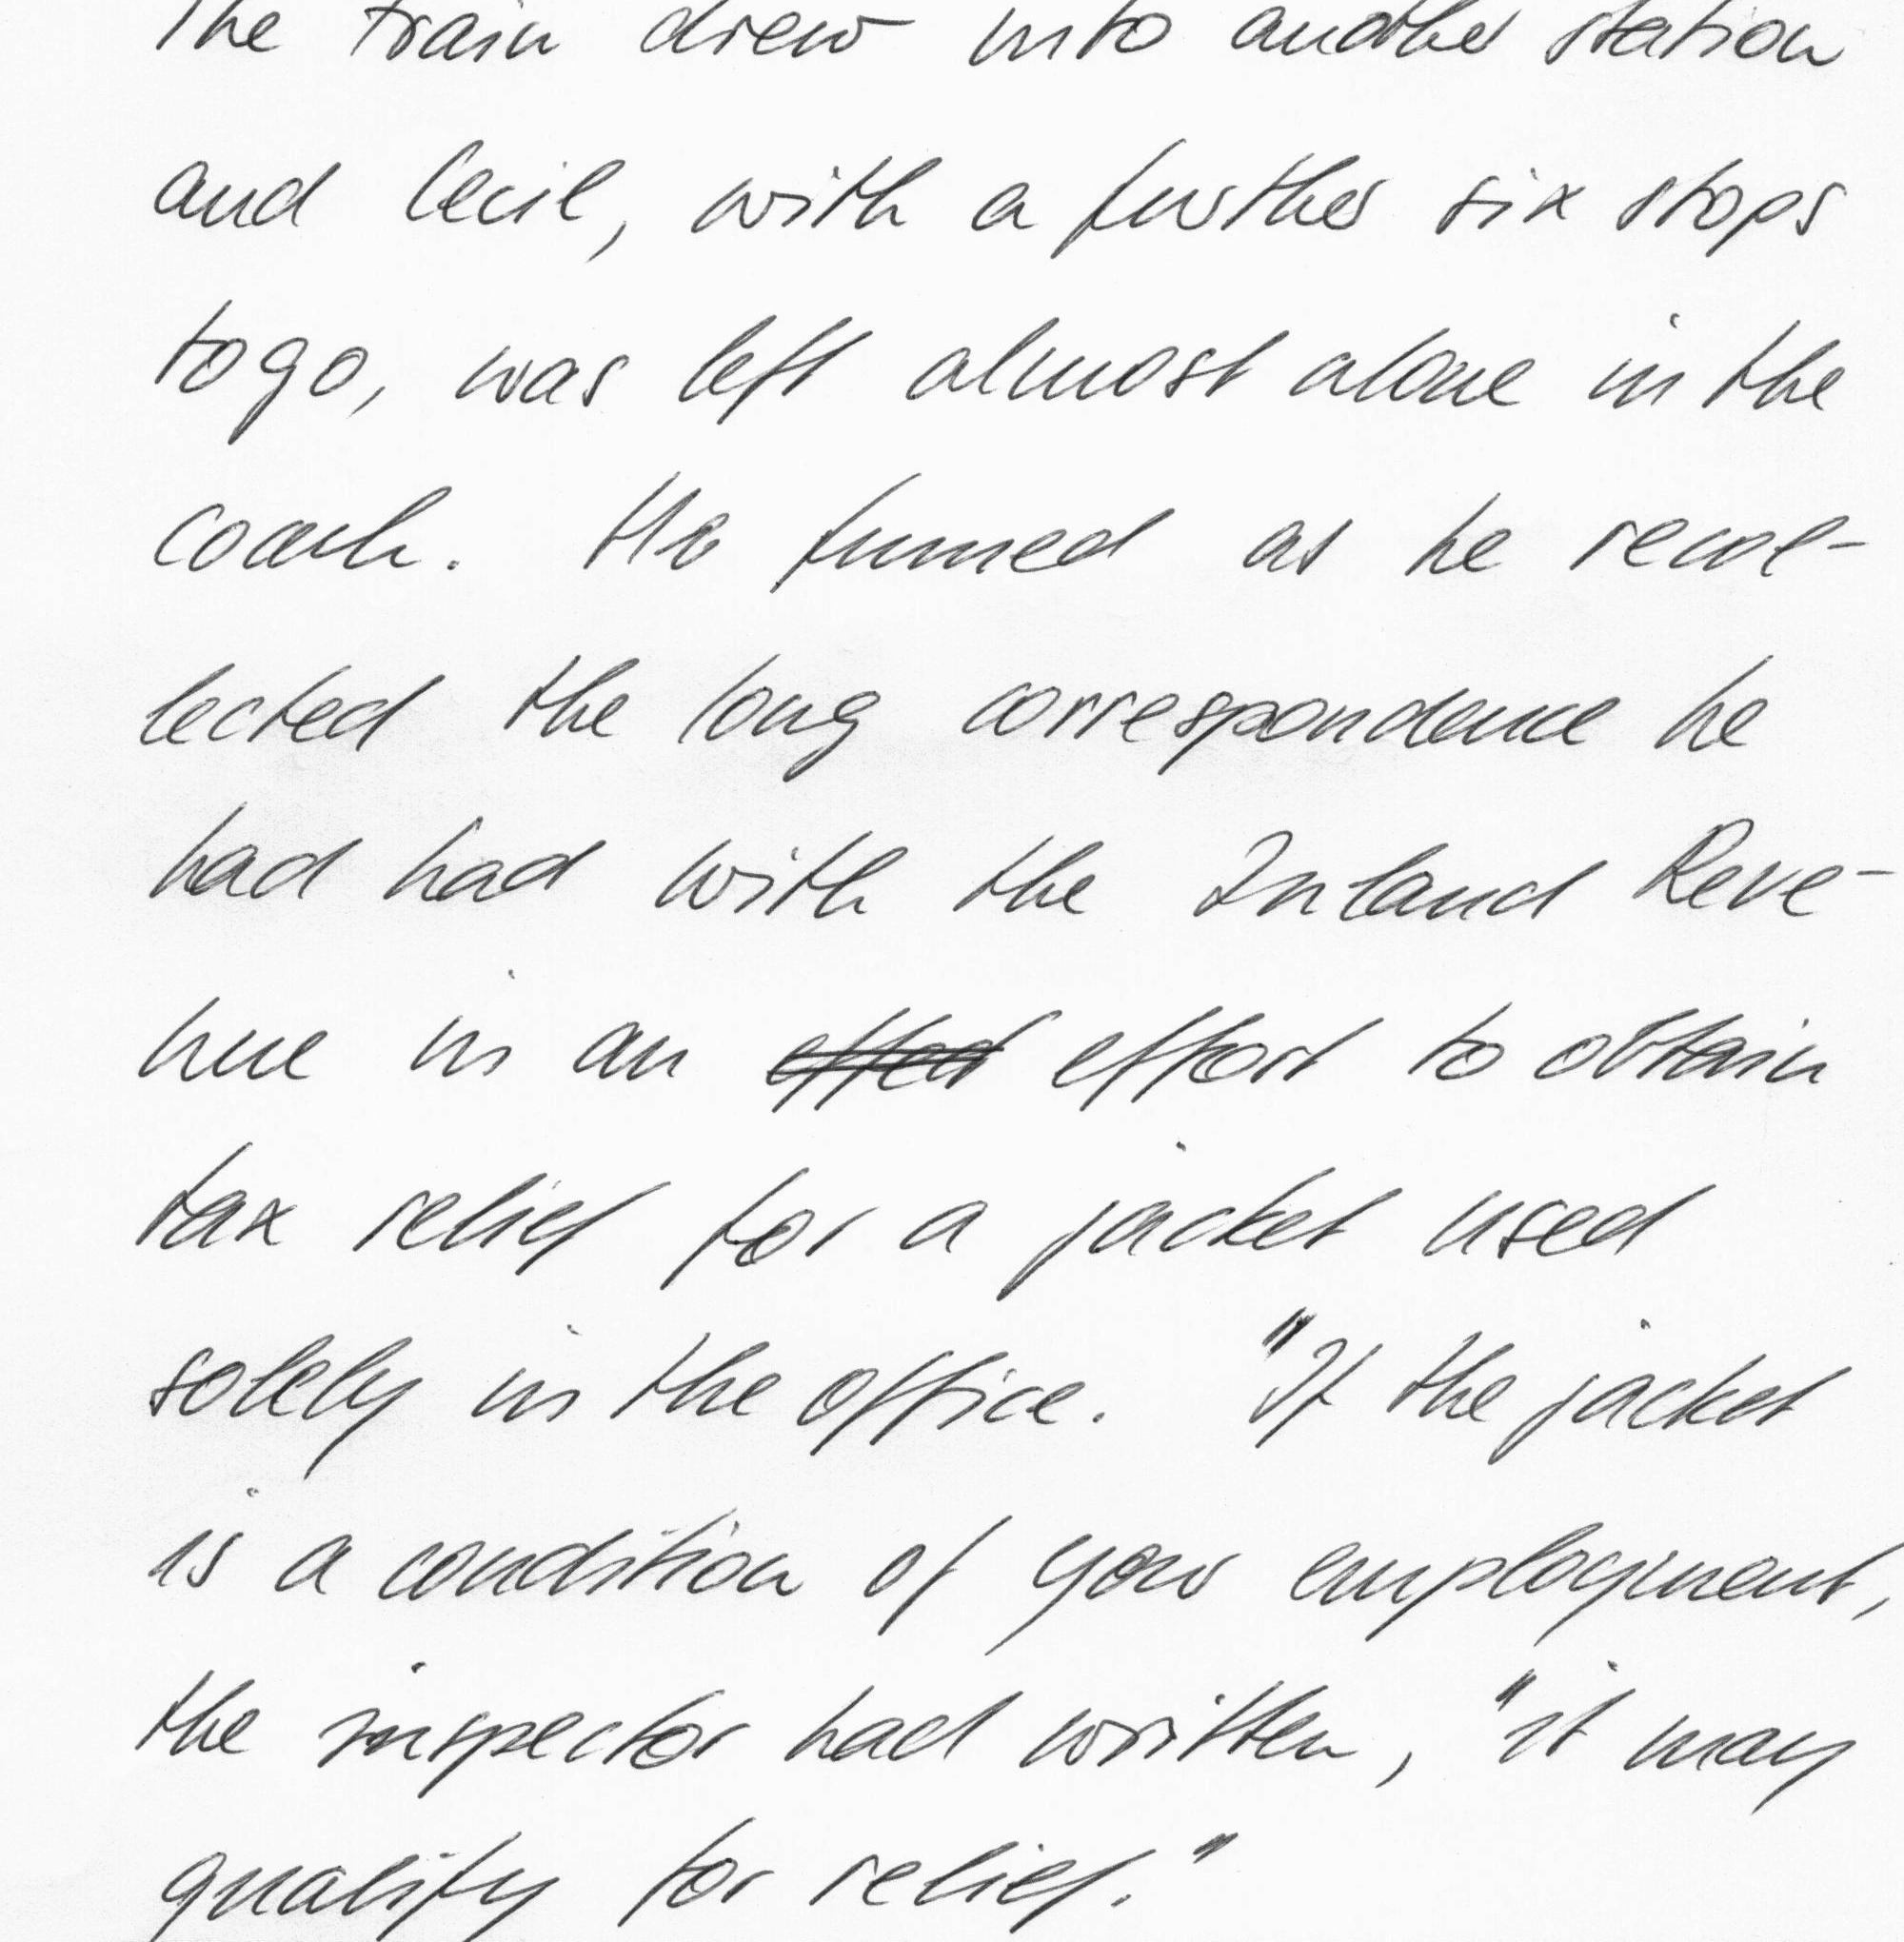 The train drew into another station
and Cecil, with a further six stops
to go, was left almost alone in the
coach. He fumed as he recol-
lected the long correspondence he
had had with the Inland Reve-
nue in an effort to obtain
tax relief for a jacket used
solely in the office. "If the jacket
is a condition of your employment,
the inspector had written, "it may
qualify for relief."